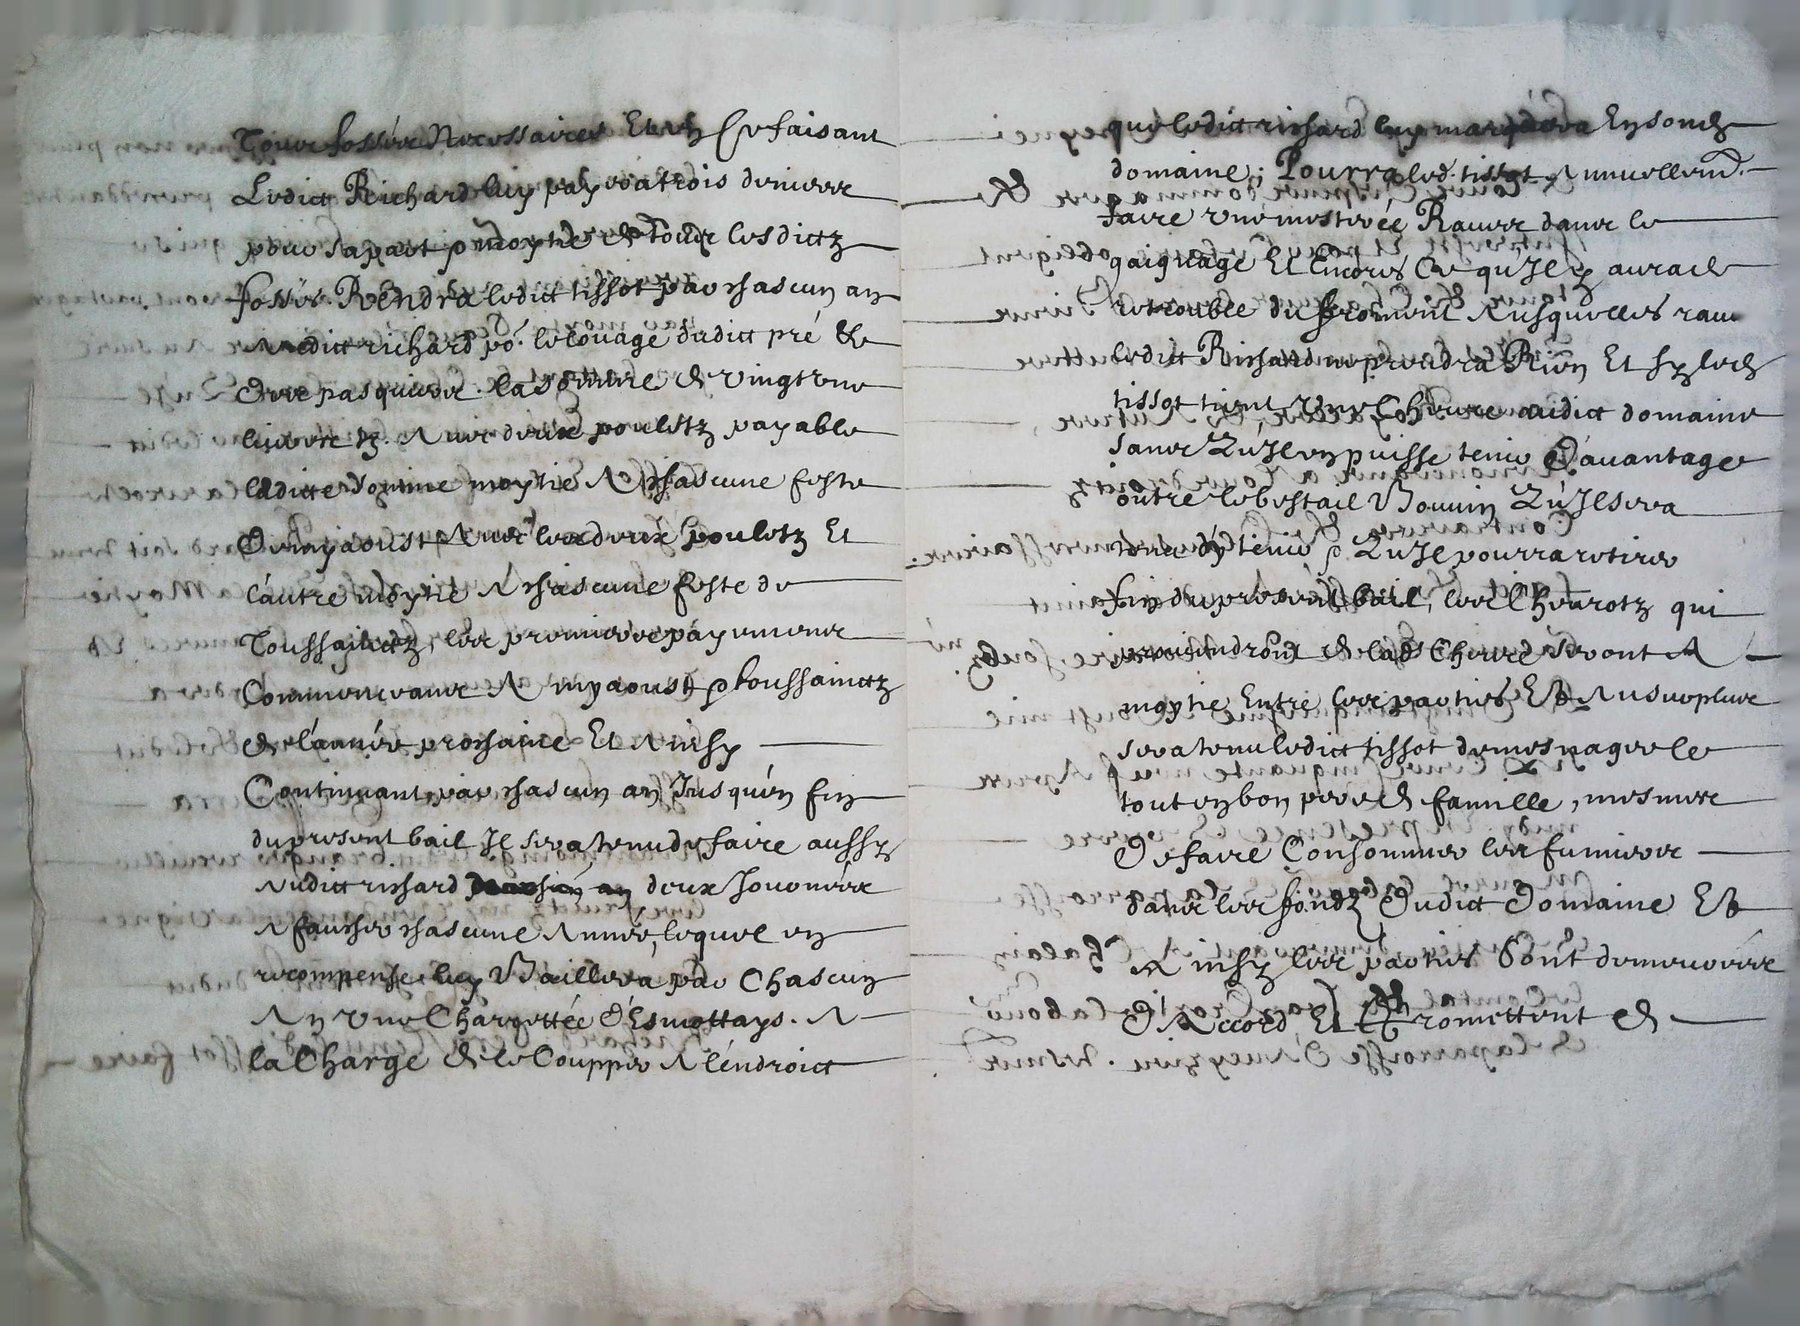 Tous fossés Necessaires Et en Ce faisant
Ledict Richard luy payera trois deniers
pour sa part & moytie de Tous lesdictz
fossés Rendra ledict tissot par chascun an
Audict richard po.r le louage dudict pré &
des pasquiers la somme de vingt une
livres tz. Avec deux pouletz payable
ladicte somme moytie A chascune feste
De myaoust Avec les deux pouletz Et
l'autre moytie A chascune feste de
Toussainctz, les premiers payemens
Commenceans A myaoust & toussainctz
de l'année prochaine Et Ainsy
Continuant par chascun an Jusqu'en fin
du present bail Il sera tenu de faire aussy
Audict richard deux Journées
A faucher chascune Année, lequel en
recompense luy Baillera par Chascun
An Une Charottée d'Esmottays. A
la Charge de le Coupper A l'endroict
que ledict richard luy marquera En sond.
domaine; Pourra led. tissot Annuellem.t
faire une mestivée Raves dans le
gaignage Et Encores Ce qu'Il y aura de
retrouble du froment Ausquelles raves
ledict Richard ne prendra Rien Et sy led.
tissot tient Une Chievre audict domaine
sans Qu'Il en puisse tenir D'avantage
outre le bestail Bouvin Qu'Il sera
tenu d'y tenir & Qu'Il pourra retirer
fin du present bail, les Chevrotz qui
proviendront de lad. Chievre seront A
moytie Entre les parties Et Au surplus
sera tenu ledict tissot de mesnager le
tout en bon pere de famille, mesmes
De faire Consommer les fumiers
dans les fondz Dudict Domaine Et
Ainsy les parties Sont demeurées
D'Accord Et Promettent de